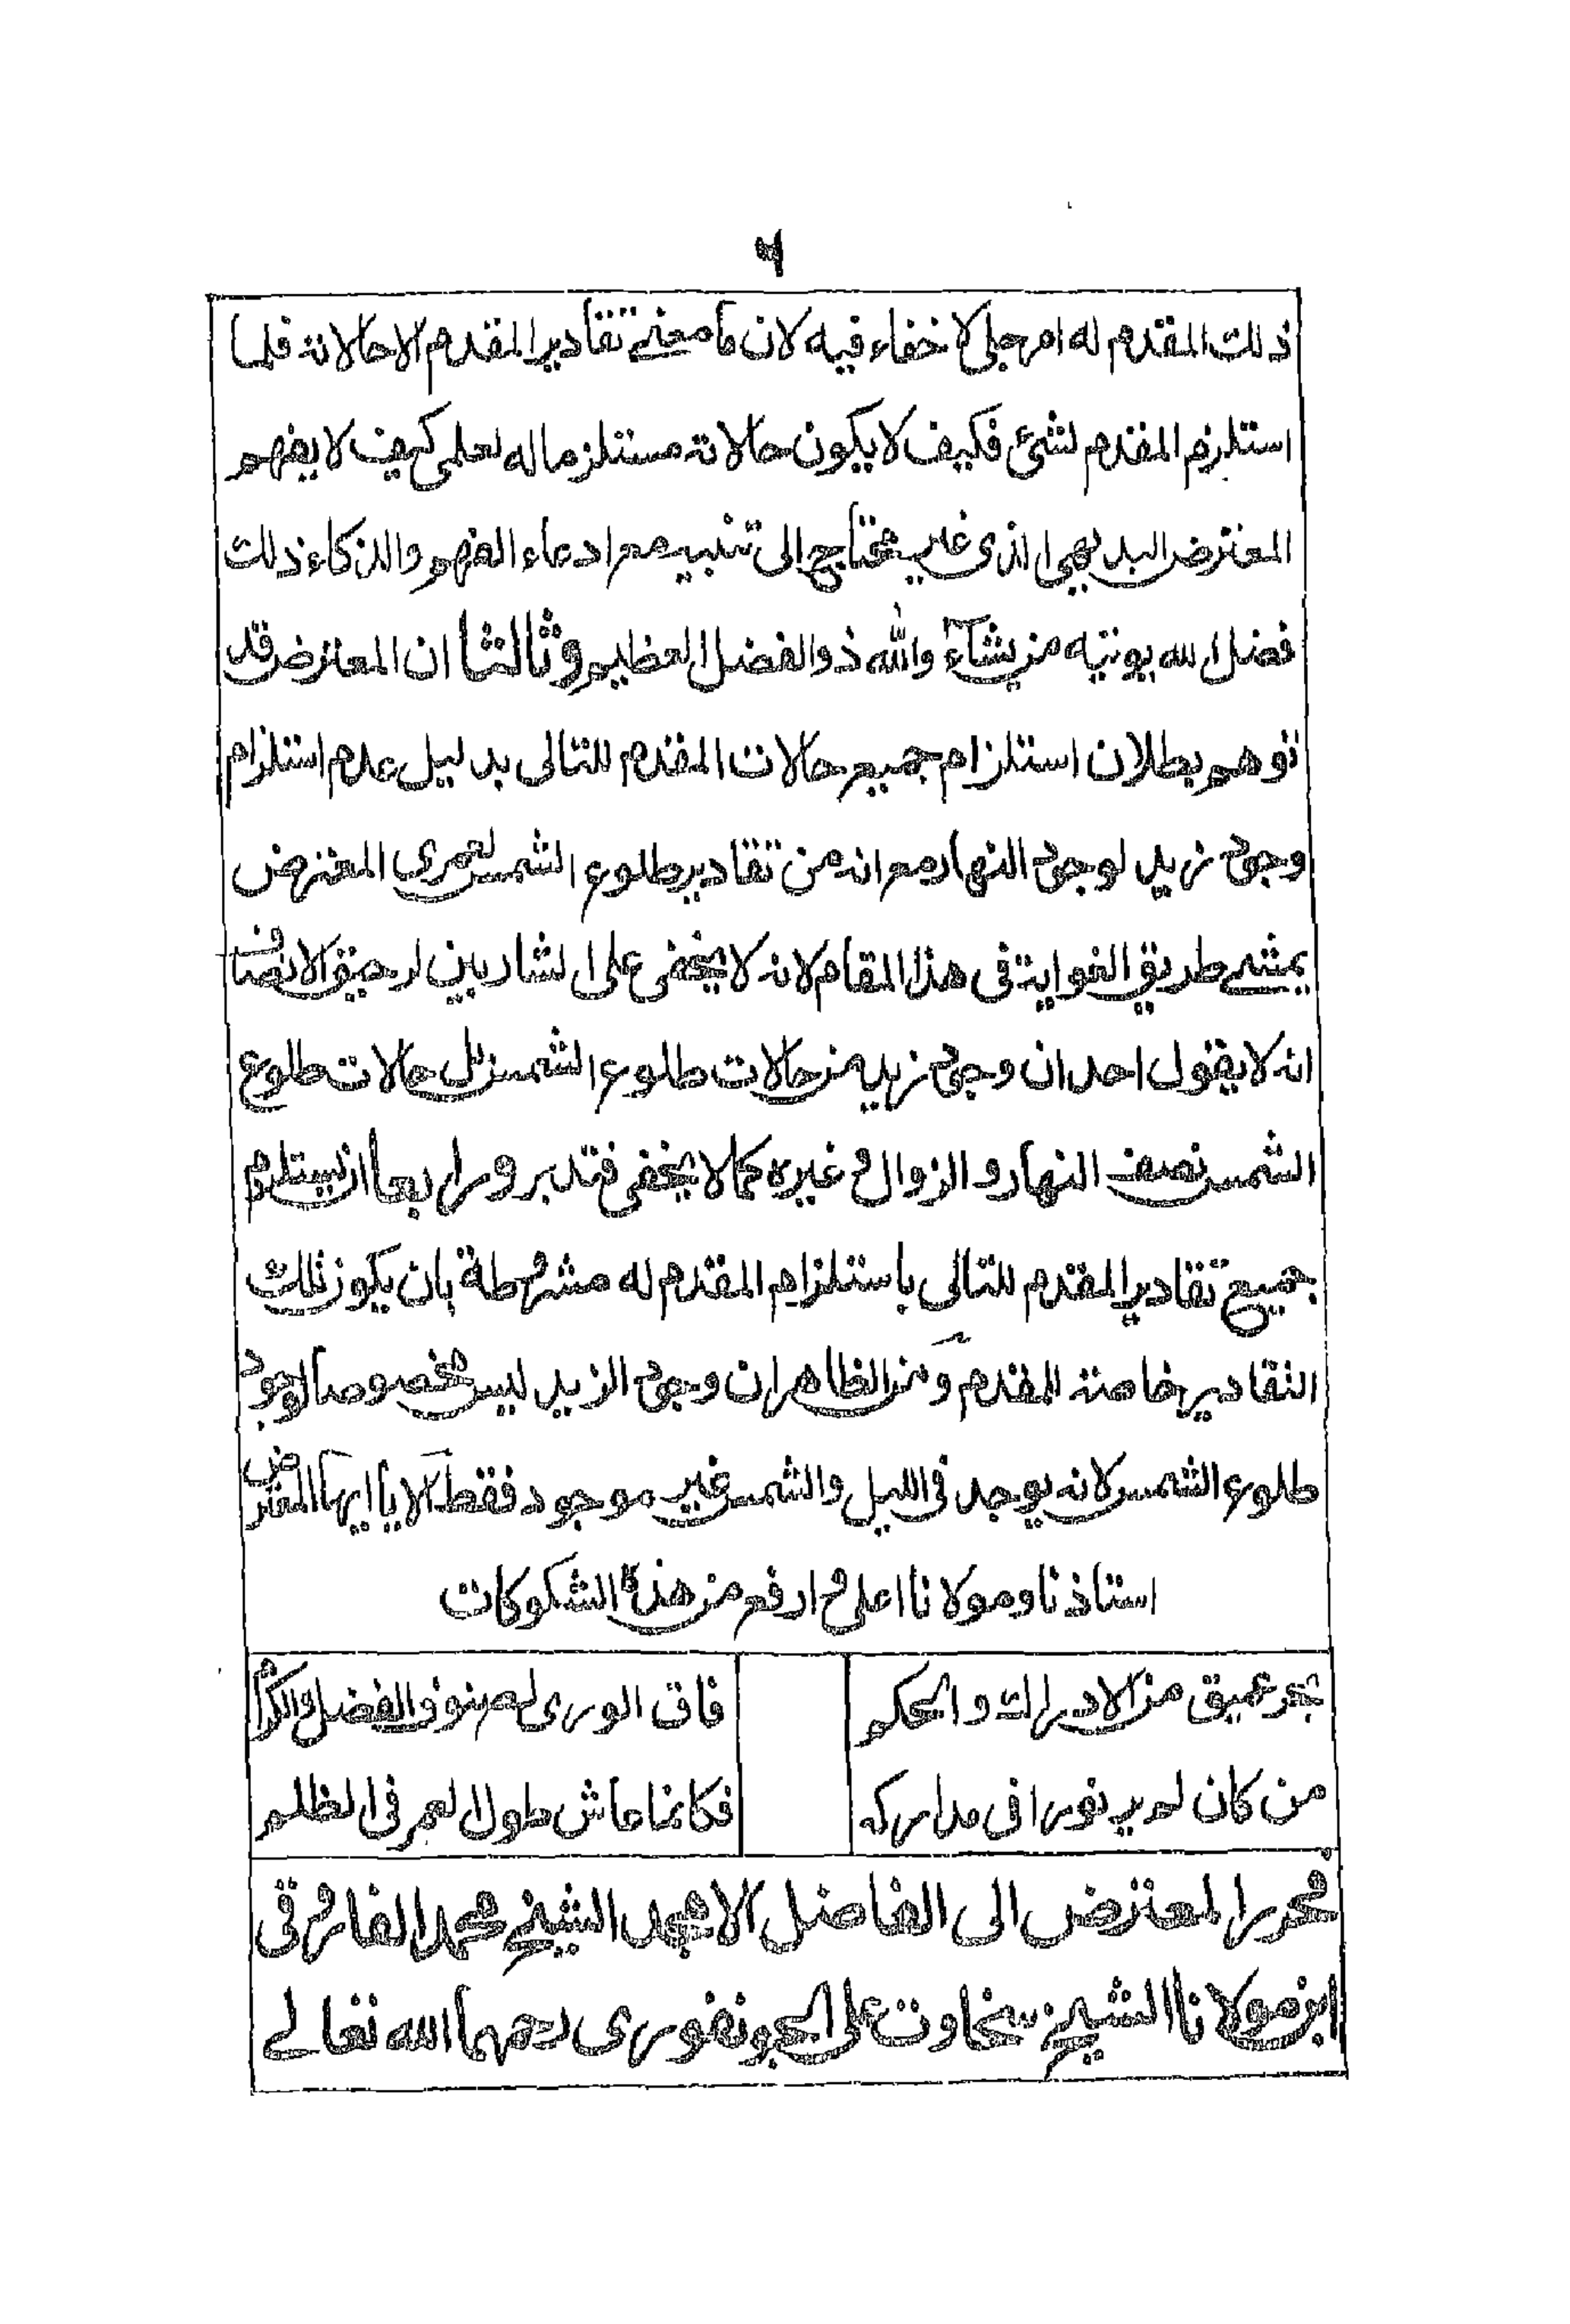 ۶
ذلك المقدم له امر جلي لا خفاء فيه لان ما معنے تقادير المقدم الا حالاته فلما
استلزم المقدم لشئ فكيف لا يكون حالاته مستلزما له لعلمى كيف لا يفهم
المعترض البديهى الذى غير محتاج الى تنبيه مع ادعاء الفهم والذكاء ذلك
فضل الله يوتيه من يشآء والله ذو الفضل العظيم وثالثا ان المعترض قد
توهم بطلان استلزام جميع حالات المقدم للتالى بدليل عدم استلزام
وجود زيد لوجود النهار مع انه من تقادير طلوع الشمس لعمرى المعترض
يمشے طريق الغواية فى هذا المقام لانه لا يخفى على الشاربين لرحيق الانصاف
انه لا يقول احد ان وجود زيد من حالات طلوع الشمس بل حالات طلوع
الشمس نصف النهار و الزوال و غيره كما لا يخفى فتدبر ورابعا ان يستلزم
جميع تقادير المقدم للتالى باستلزام المقدم له مشروطة بان يكون تلك
التقادير خاصة المقدم و من الظاهر ان وجود الزيد ليس مخصوصا لوجود
طلوع الشمس لانه يوجد فى الليل والشمس غير موجود فقط الا يا ايها المعترض
استاذنا ومولانا اعلى و ارفع من هذه الشكوكات
بحر عميق من الادراك و الحكم فاق الورى لهم نو ذو الفضل والكرم
من كان لم ير نورا فى مداركه فكانما عاش طول العمر فى الظلم
محرر المعترض الى الفاضل الامجد الشيخ محمد الفاروقى
ابن مولانا الشيخ سخاوت على الجونفورى رحمهما الله تعالے